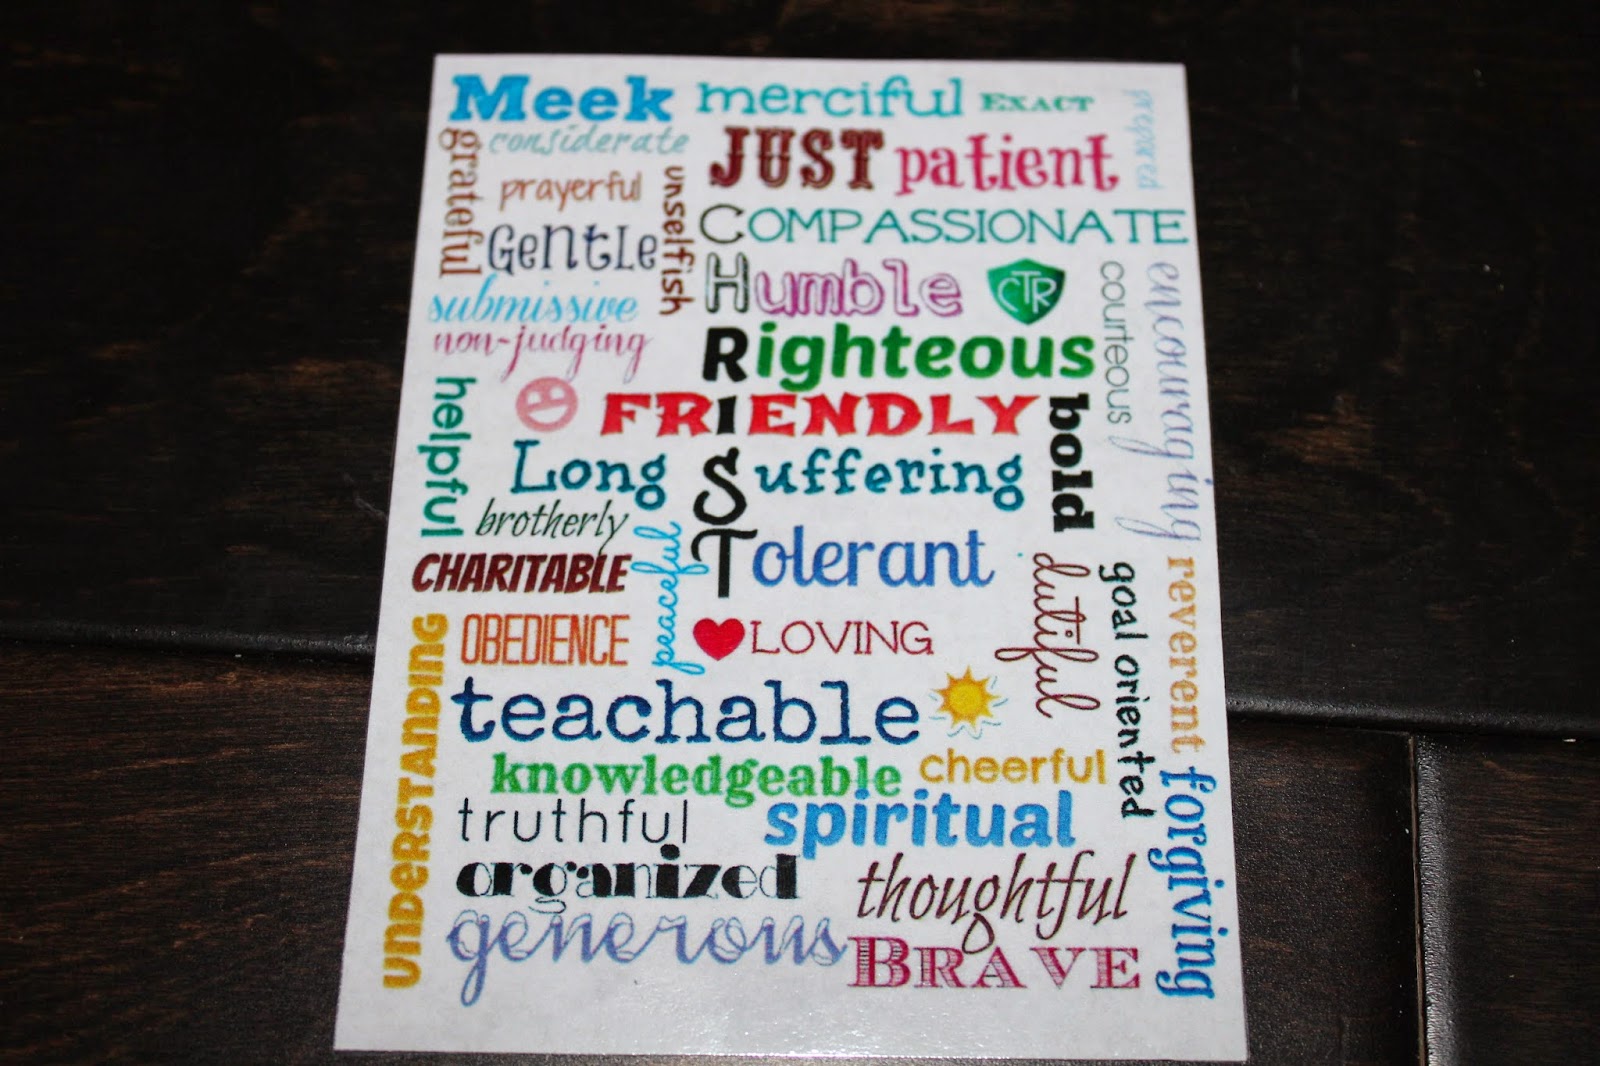 Meek merciful EXACT
prepared
considerate
grateful
JUST patient
prayerful
unselfish
COMPASSIONATE
GENTLE
Humble
CTR
submissive
courteous
encouraging
non-judging
Righteous
helpful
FRIENDLY
bold
Long Suffering
brotherly
peaceful
Tolerant
CHARITABLE
dutiful
goal oriented
reverent
OBEDIENCE
LOVING
UNDERSTANDING
teachable
knowledgeable cheerful
forgiving
truthful spiritual
organized thoughtful
generous BRAVE